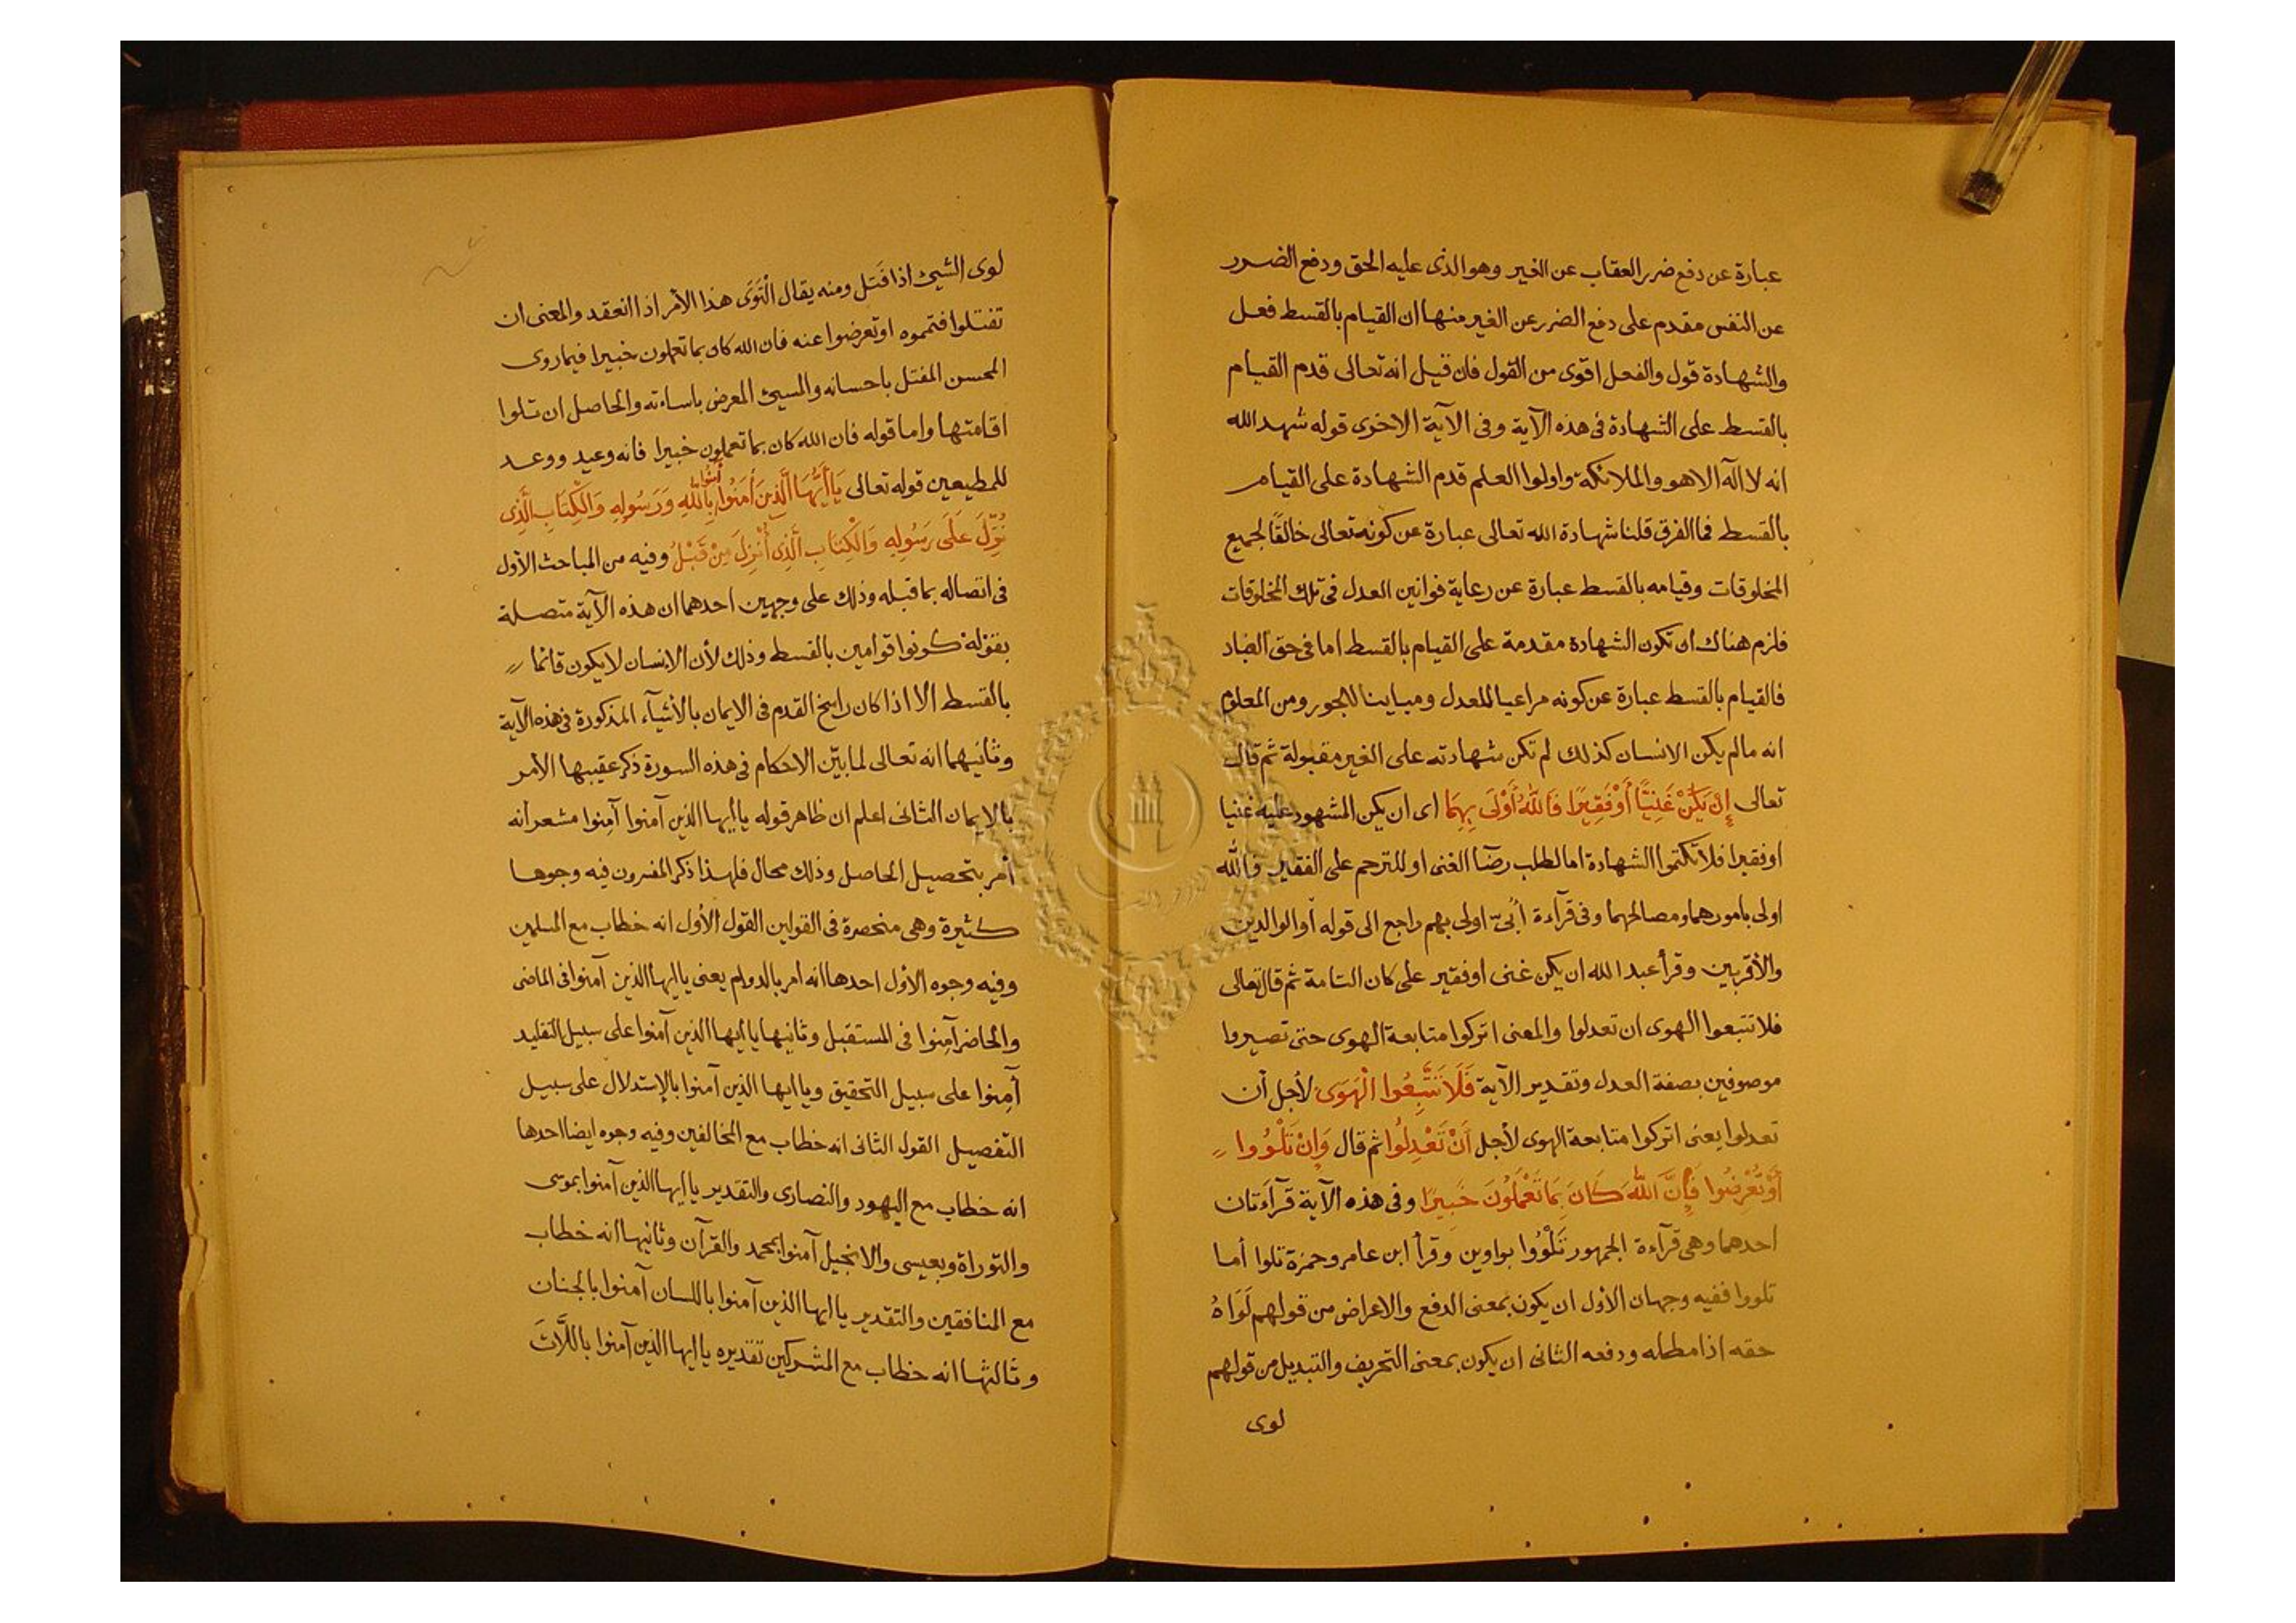 عبارة عن دفع ضرر العقاب عن الغير وهو الذى عليه الحق ودفع الضرر
عن النفس مقدم على دفع الضرر عن الغير منها ان القيام بالقسط فعل
والشهادة قول والفعل اقوى من القول فان قيل انه تعالى قدم القيام
بالقسط على الشهادة فى هذه الآية وفى الآية الاخرى قوله شهد الله
انه لا اله الا هو والملائكة واولوا العلم قدم الشهادة على القيام
بالقسط فما الفرق قلنا شهادة الله تعالى عبارة عن كونه تعالى خالقًا لجميع
المخلوقات وقيامه بالقسط عبارة عن رعاية قوانين العدل فى تلك المخلوقات
فلزم هناك ان تكون الشهادة مقدمة على القيام بالقسط اما فى حق العباد
فالقيام بالقسط عبارة عن كونه مراعيا للعدل ومباينا للجور ومن المعلوم
انه مالم يكن الانسان كذلك لم تكن شهادته على الغير مقبولة ثم قال
تعالى إِنْ يَكُنْ غَنِيًّا أَوْ فَقِيرًا فَاللَّهُ أَوْلَى بِهِمَا اى ان يكن المشهود عليه غنيا
او فقيرا فلا تكتموا الشهادة اما لطلب رضا الغنى او للترحم على الفقير فالله
اولى بامورهما ومصالحهما وفى قرآءة أُبىّ اولى بهم راجع الى قوله أو الوالدين
والأقربين وقرأ عبد الله ان يكن غنى او فقير على كان التامة ثم قال تعالى
فلا تتبعوا الهوى ان تعدلوا والمعنى اتركوا متابعة الهوى حتى تصيروا
موصوفين بصفة العدل وتقدير الآية فَلَا تَتَّبِعُوا الْهَوَى لأجل أن
تعدلوا يعنى اتركوا متابعة الهوى لأجل أَنْ تَعْدِلُوا ثم قال وَإِنْ تَلْوُوا
أَوْ تُعْرِضُوا فَإِنَّ اللَّهَ كَانَ بِمَا تَعْمَلُونَ خَبِيرًا وفى هذه الآية قرآءتان
احدهما وهى قرآءة الجمهور تَلْوُوا بواوين وقرأ ابن عامر وحمزة تلوا أما
تلووا ففيه وجهان الأول ان يكون بمعنى الدفع والاعراض من قولهم لَوَاهُ
حقه اذا مطله ودفعه الثانى ان يكون بمعنى التحريف والتبديل من قولهم
لوى
لوى الشيئ اذا فَتَل ومنه يقال الْتَوَى هذا الأمر اذا انعقد والمعنى ان
تفتلوا فتموه او تعرضوا عنه فان الله كان بما تعملون خبيرا فيما روى
المحسن المفتل باحسانه والمسيئ المعرض باساءته والحاصل ان تلوا
اقامتها واما قوله فان الله كان بما تعملون خبيرا فانه وعيد ووعد
للمطيعين قوله تعالى يَا أَيُّهَا الَّذِينَ آَمَنُوا آمِنُوا بِاللَّهِ وَرَسُولِهِ وَالْكِتَابِ الَّذِى
نُزِّلَ عَلَى رَسُولِهِ وَالْكِتَابِ الَّذِى أُنْزِلَ مِنْ قَبْلُ وفيه من المباحث الأول
فى اتصاله بما قبله وذلك على وجهين احدهما ان هذه الآية متصلة
بقوله كونوا قوامين بالقسط وذلك لأن الانسان لا يكون قائما
بالقسط الا اذا كان راسخ القدم فى الايمان بالأشيآء المذكورة فى هذه الآية
وثانيهما انه تعالى لما بيّن الاحكام فى هذه السورة ذكر عقيبها الأمر
بالايمان الثانى اعلم ان ظاهر قوله يا أيها الذين آمنوا آمِنوا مشعر أنه
أمر بتحصيل الحاصل وذلك محال فلهذا ذكر المفسرون فيه وجوها
كثيرة وهى منحصرة فى القولين القول الأول انه خطاب مع المسلمين
وفيه وجوه الأول احدها انه امر بالدوام يعنى يا ايها الذين آمنوا فى الماضى
والحاضر آمِنوا فى المستقبل وثانيها يا أيها الذين آمنوا على سبيل التقليد
آمِنوا على سبيل التحقيق ويا ايها الذين آمنوا بالإستدلال على سبيل
التفصيل القول الثانى انه خطاب مع المخالفين وفيه وجوه ايضا احدها
انه خطاب مع اليهود والنصارى والتقدير يا ايها الذين آمنوا بموسى
والتوراة وبعيسى والانجيل آمنوا بمحمد والقرآن وثانيها انه خطاب
مع المنافقين والتقدير يا ايها الذين آمنوا باللسان آمنوا بالجنان
وثالثها انه خطاب مع المشركين تقديره يا ايها الذين آمنوا باللَّاتَ